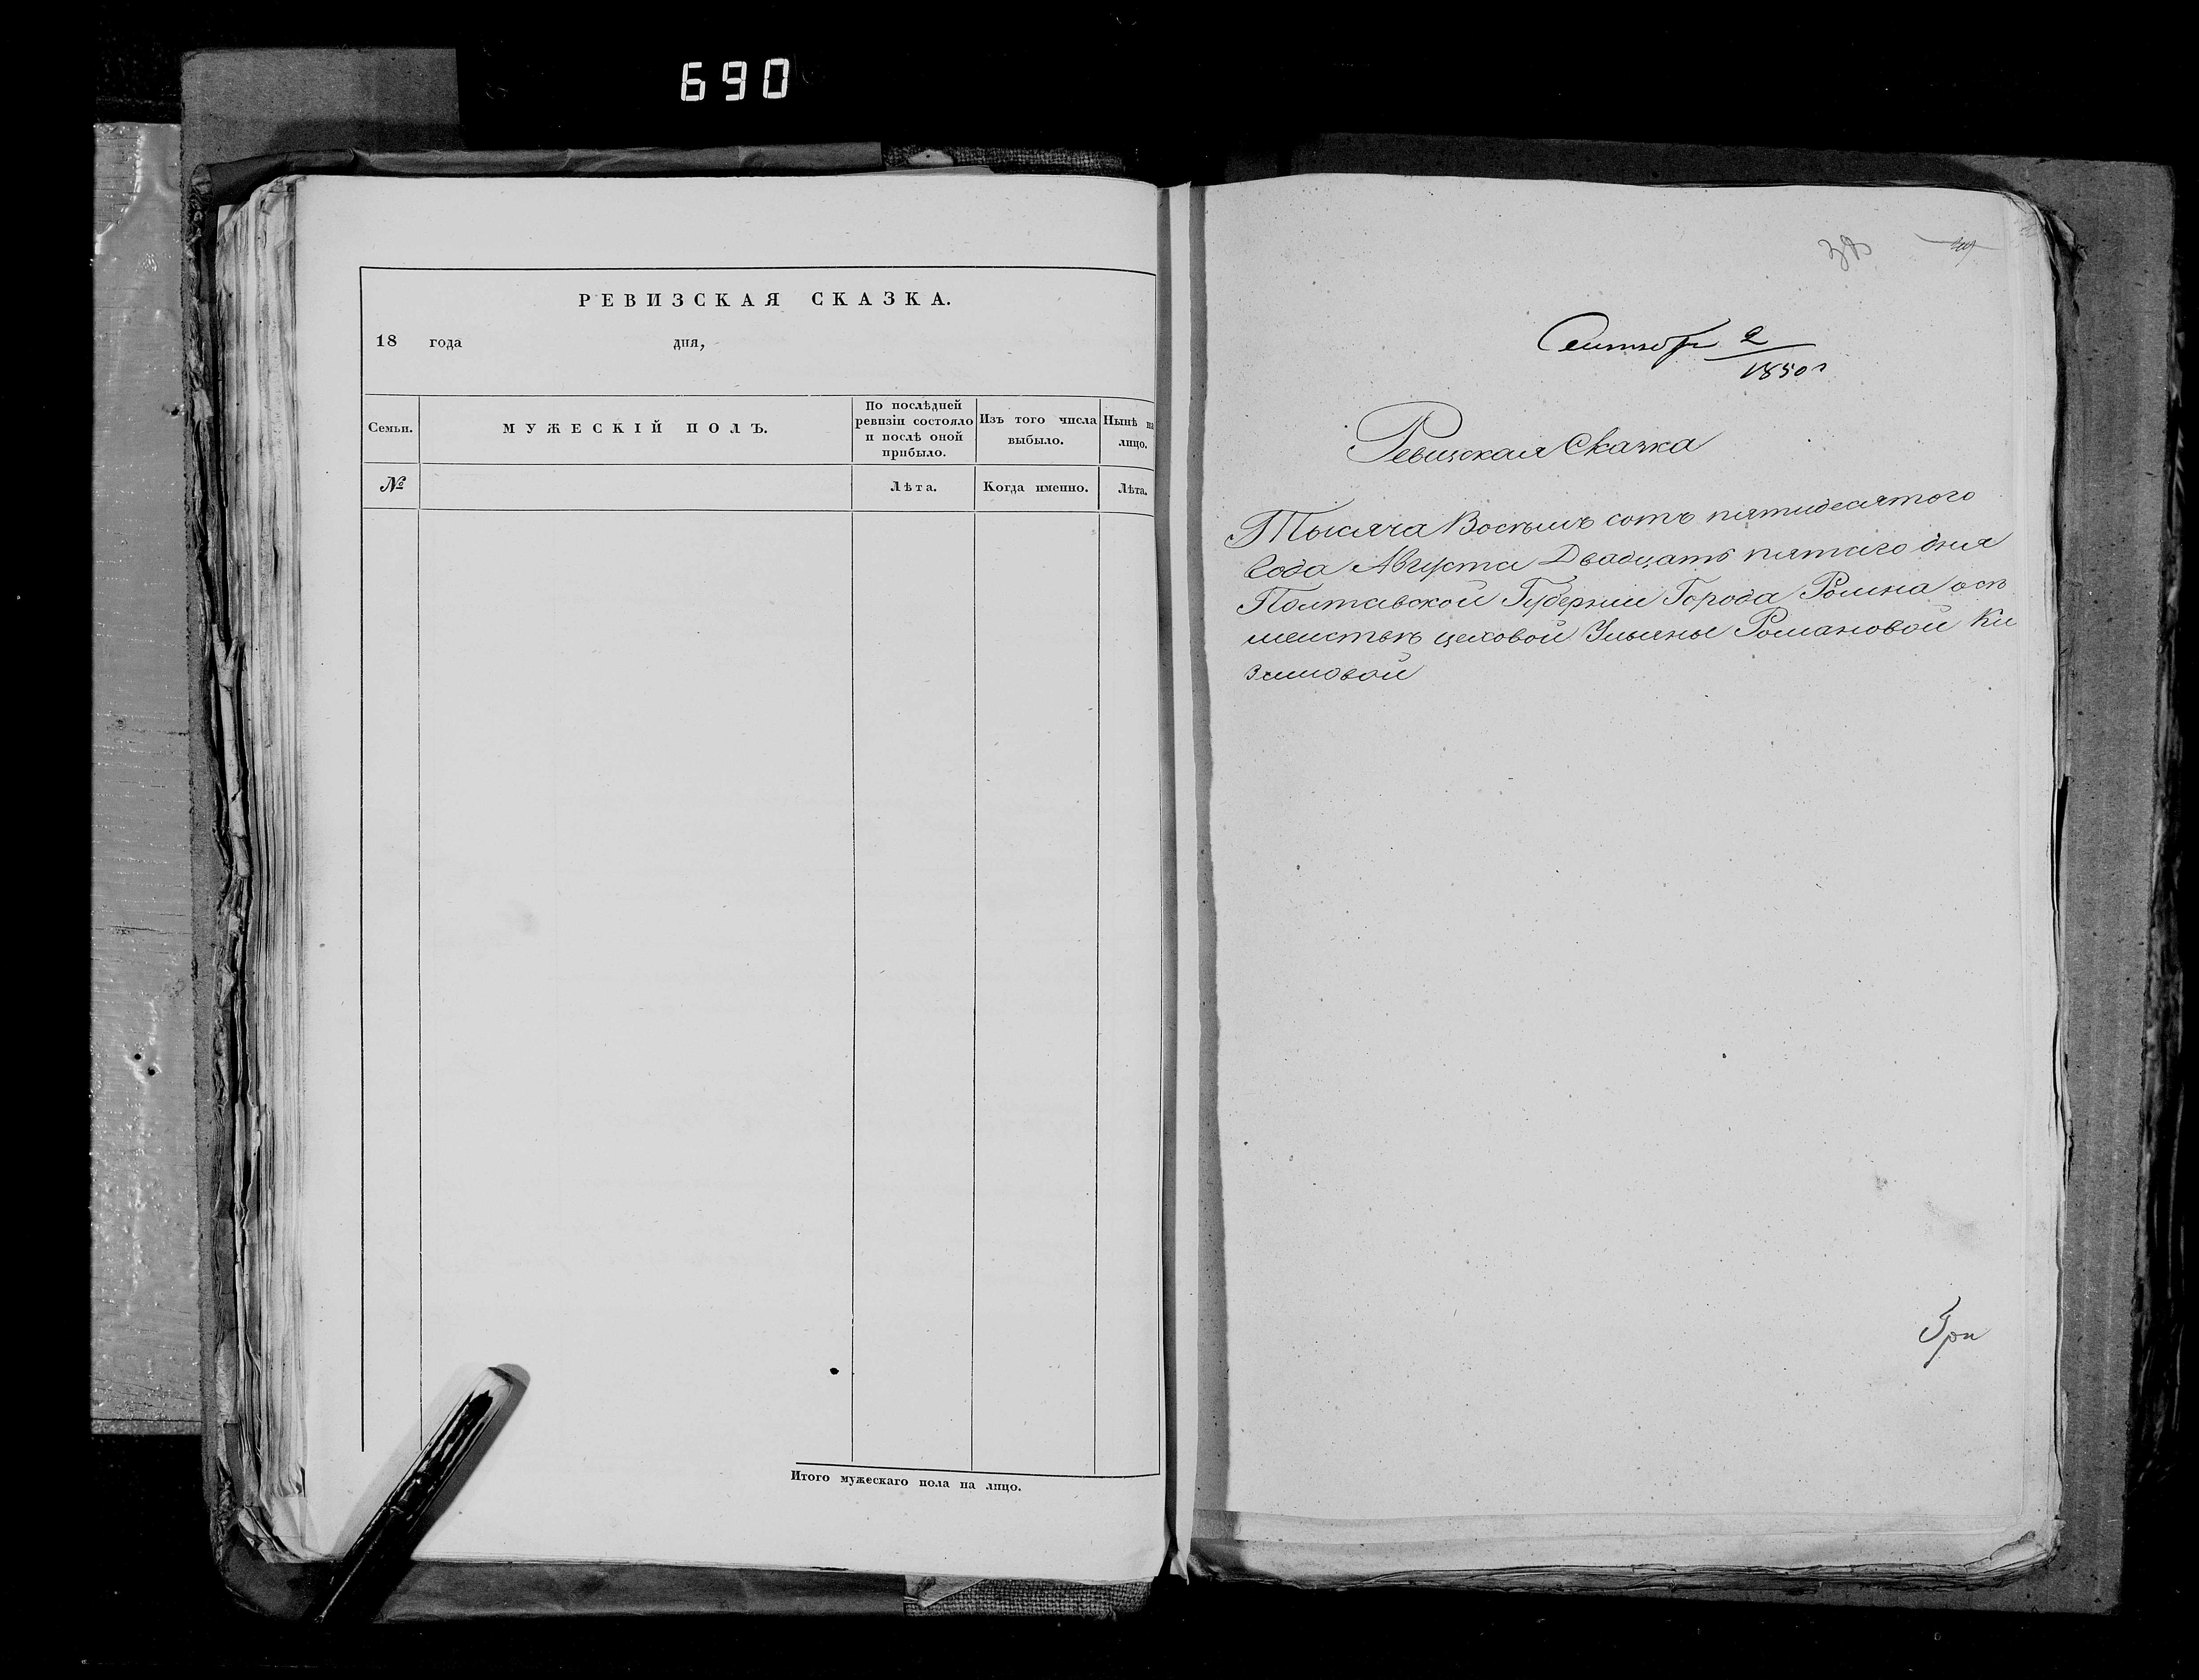 690
РЕВИЗСКАЯ СКАЗКА.
18 года дня,
Семьи.
МУЖЕСКІЙ ПОЛЪ.
По послѣдней ревизіи состояло и послѣ оной прибыло.
Изъ того числа выбыло.
Нынѣ на лицо.
№
Лѣта.
Когда именно.
Лѣта.
Итого мужескаго пола на лицо.
38
2
1850
Ревизская Сказка
Тысяча Восемь сотъ пятидесятого
Года Августа Двадцать пятаго дня
Полтавской Губерніи Города Ромна
цеховой Ульяны Романовой Ки
зимовой